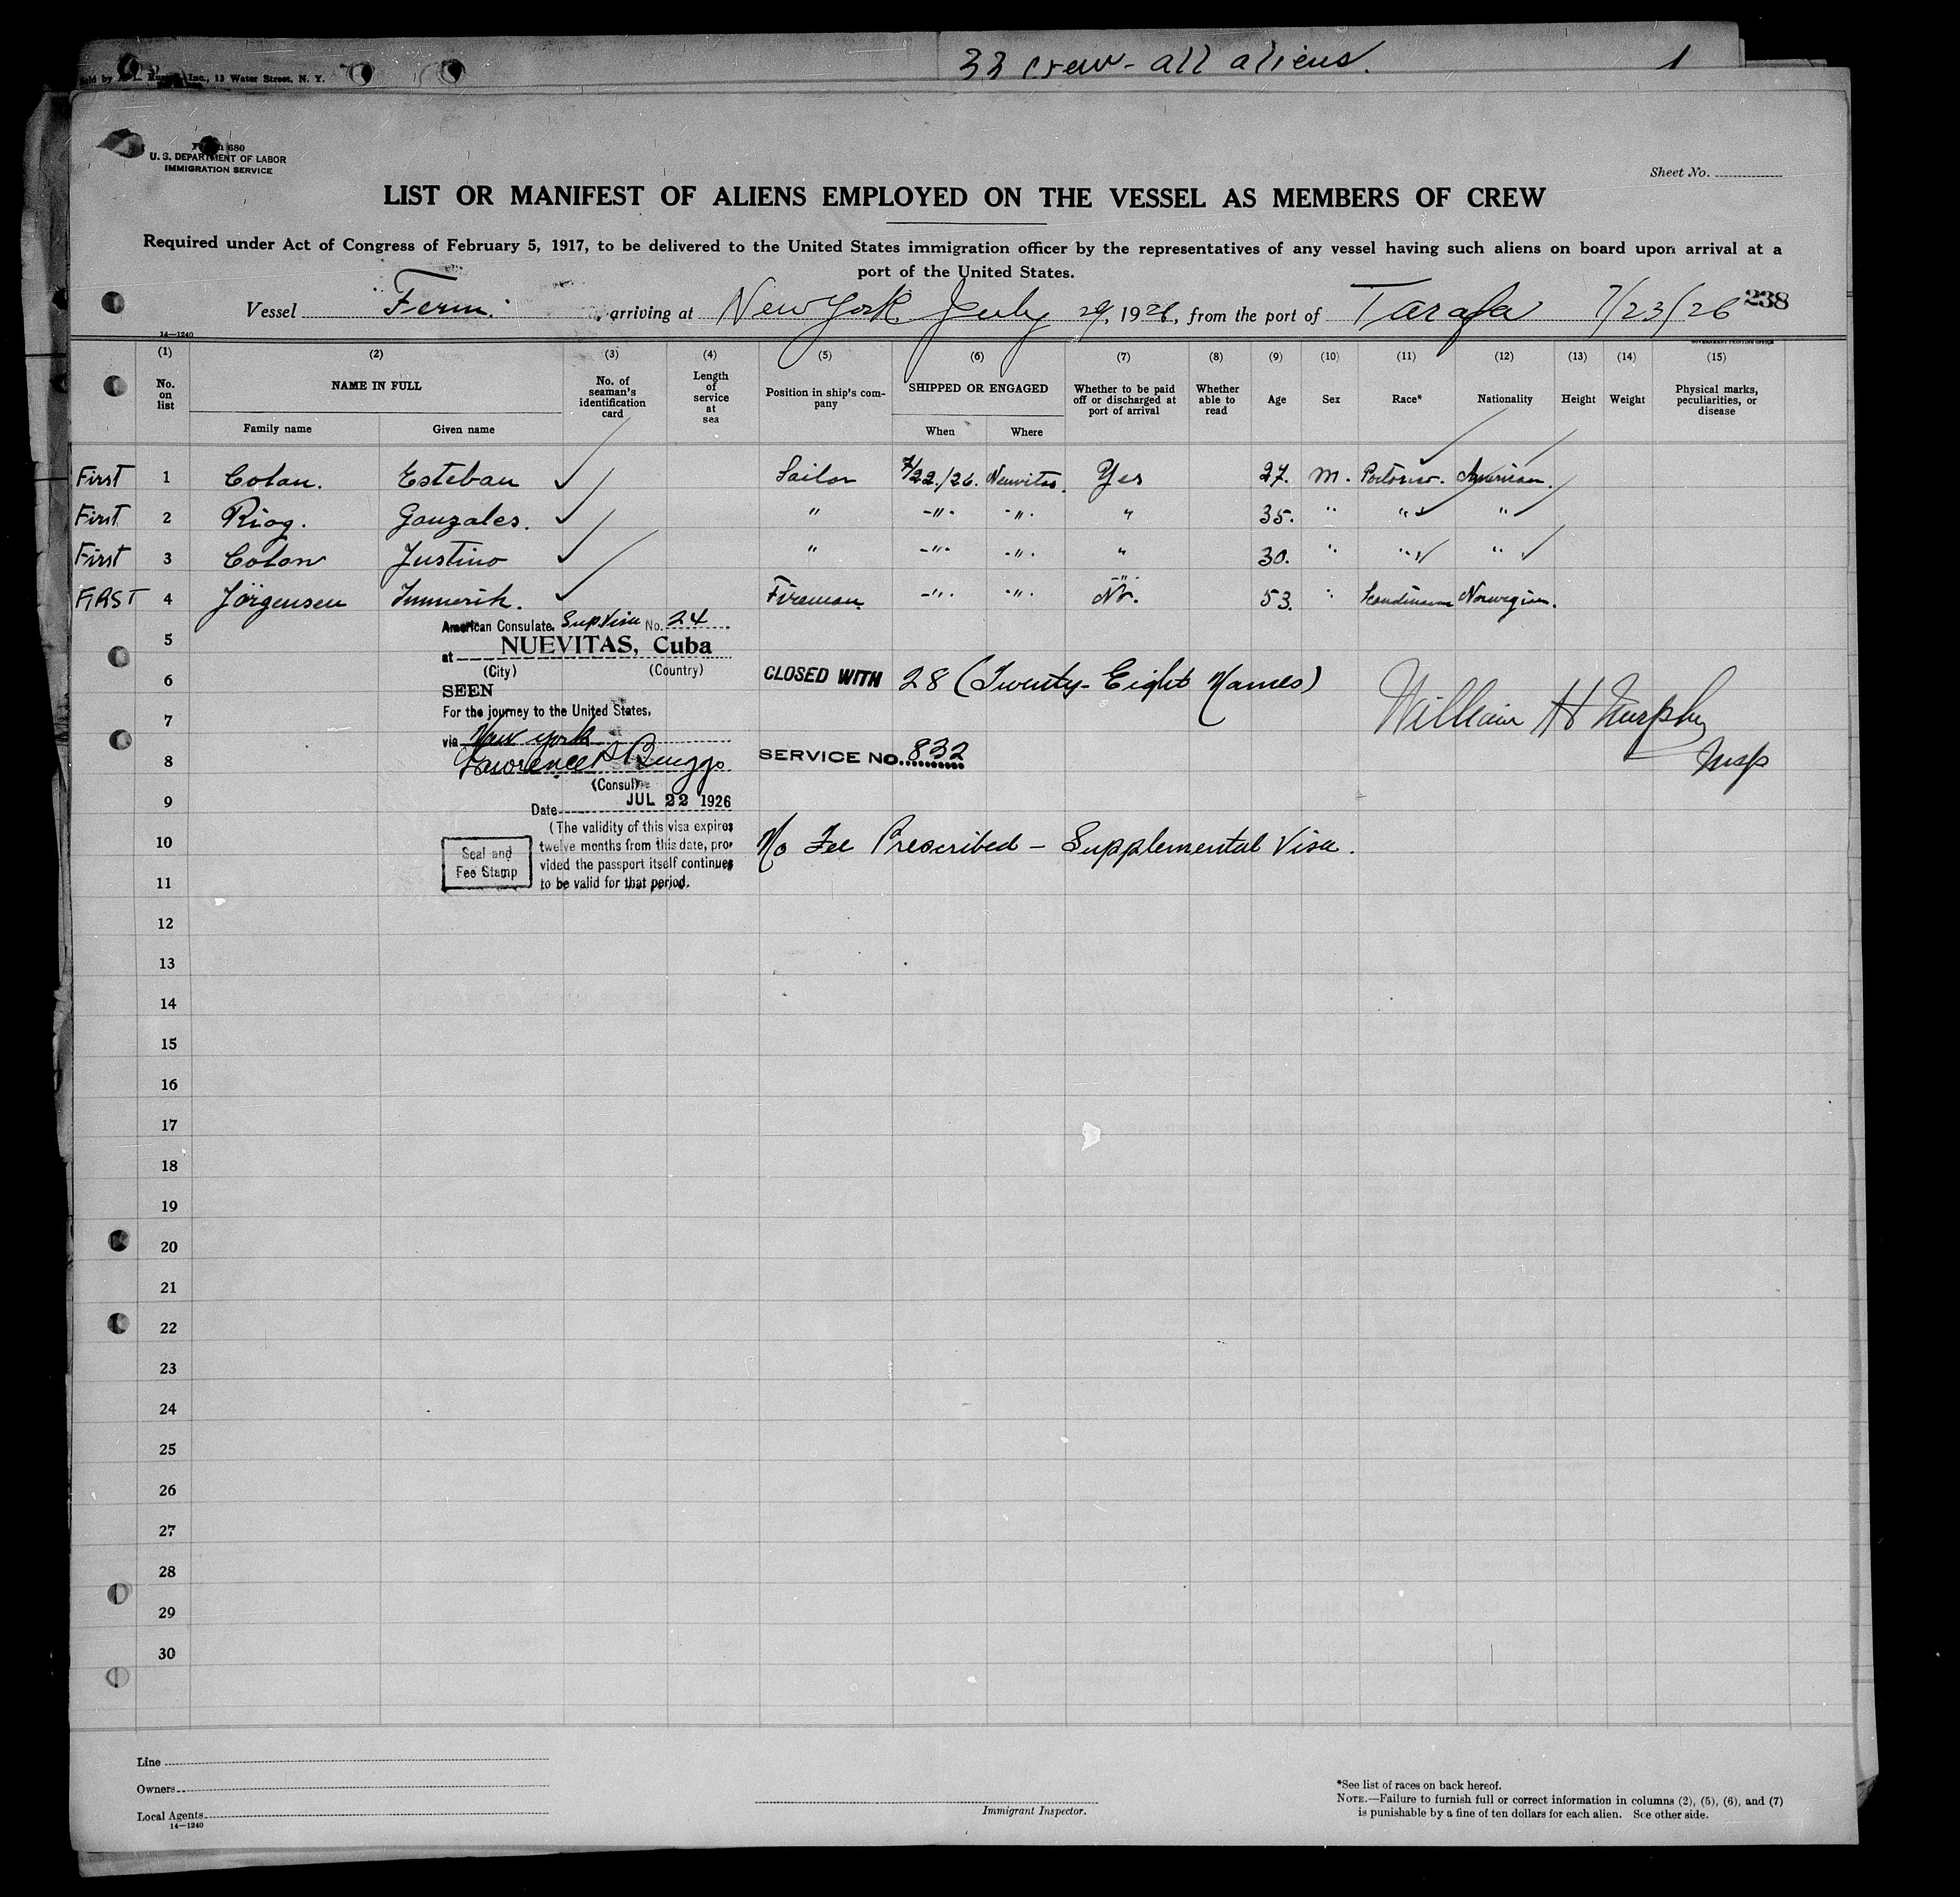 33 crew - all aliens. 1
Inc., 13 Water Street, N. Y.
680
U. S. DEPARTMENT OF LABOR
IMMIGRATION SERVICE
Sheet No.
LIST OR MANIFEST OF ALIENS EMPLOYED ON THE VESSEL AS MEMBERS OF CREW
Required under Act of Congress of February 5, 1917, to be delivered to the United States immigration officer by the representatives of any vessel having such aliens on board upon arrival at a
port of the United States.
Vessel "Fernı", arriving at New York July 29, 1926, from the port of Tarafa 7/23/26 238
14—1240
GOVERNMENT PRINTING OFFICE
(1) (2) (3) (4) (5) (6) (7) (8) (9) (10) (11) (12) (13) (14) (15)
No. on list NAME IN FULL No. of seaman's identification card Length of service at sea Position in ship's company SHIPPED OR ENGAGED Whether to be paid off or discharged at port of arrival Whether able to read Age Sex Race* Nationality Height Weight Physical marks, peculiarities, or disease
Family name Given name When Where
First 1 Colan. Esteban ✓ Sailor 7/22./26. Nuevitas. Yes 27. M. Portorico. American.
First 2 Riog. Gonzales. ✓ " -"- -"- " 35. " " ✓ " ✓
First 3 Colon Justino ✓ " -"- -"- " 30. " " ✓ " ✓
FIRST 4 Jörgensen ✓ Fireman. -"- -"- No. 53. " Scandinavn Norwegian.
5
6
7
8
9
10
11
American Consulate. Sup Visa No. 24
at NUEVITAS, Cuba
(City) (Country)
SEEN
For the journey to the United States,
via New York
Lawrence S Briggs
(Consul)
Date JUL 22 1926
(The validity of this visa expires
twelve months from this date, pro-
vided the passport itself continues
to be valid for that period.
Seal and
Fee Stamp
CLOSED WITH 28 (Twenty-Eight Names)
William H Murphy
Insp
SERVICE No. 832
No Fee Prescribed - Supplemental Visa.
12
13
14
15
16
17
18
19
20
21
22
23
24
25
26
27
28
29
30
Line
Owners
Local Agents
14—1240
Immigrant Inspector.
*See list of races on back hereof.
NOTE.—Failure to furnish full or correct information in columns (2), (5), (6), and (7)
is punishable by a fine of ten dollars for each alien. See other side.